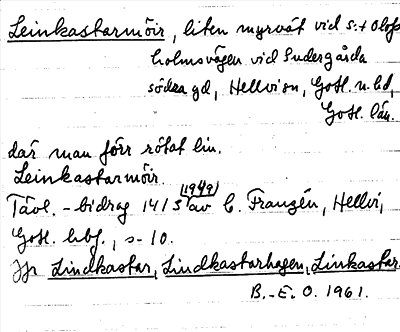 Leinkastarmöir, liten myrvät vid S:t Olofs
holmsvägen vid Sudergårda
södra gd, Hellvi sn, Gotl. n. hd,
Gotl. län.
där man förr rötat lin.
Leinkastarmöir.
Tävl.-bidrag 1413 (1949) av C. Franzén, Hellvi,
Gotl. hbf., s. 10.
Jfr Lindkastar, Lindkastarhagen, Linkastar.
B.-E. O. 1961.